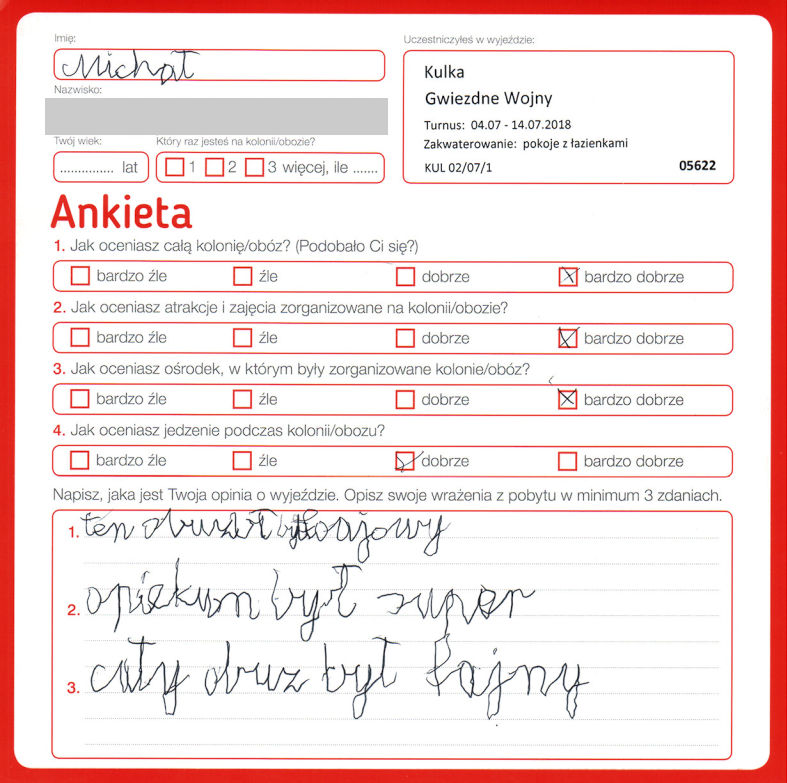 Imię:
Michał
Nazwisko:
Twój wiek:
Który raz jesteś na kolonii/obozie?
............... lat
1 2 3 więcej, ile .......
Uczestniczyłeś w wyjeździe:
Kulka
Gwiezdne Wojny
Turnus: 04.07 - 14.07.2018
Zakwaterowanie: pokoje z łazienkami
KUL 02/07/1 05622
Ankieta
1. Jak oceniasz całą kolonię/obóz? (Podobało Ci się?)
bardzo źle źle dobrze bardzo dobrze
2. Jak oceniasz atrakcje i zajęcia zorganizowane na kolonii/obozie?
bardzo źle źle dobrze bardzo dobrze
3. Jak oceniasz ośrodek, w którym były zorganizowane kolonie/obóz?
bardzo źle źle dobrze bardzo dobrze
4. Jak oceniasz jedzenie podczas kolonii/obozu?
bardzo źle źle dobrze bardzo dobrze
Napisz, jaka jest Twoja opinia o wyjeździe. Opisz swoje wrażenia z pobytu w minimum 3 zdaniach.
1. ten
2. opiekun był super
3. cały obuz był fajny